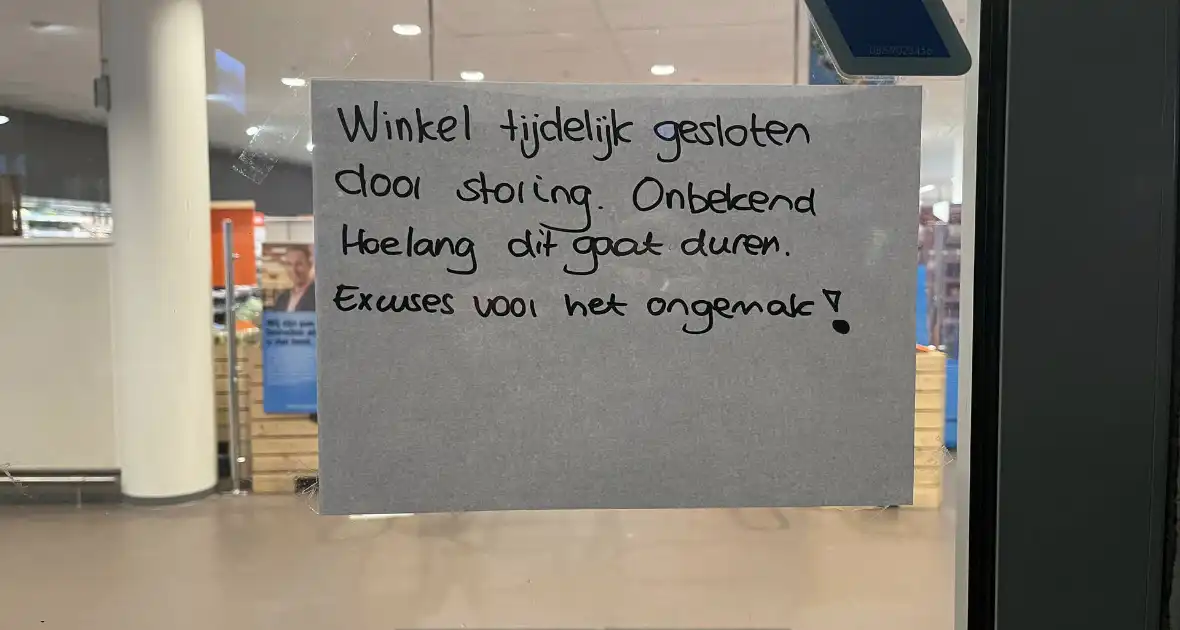 Winkel tijdelijk gesloten
door storing. Onbekend
Hoelang dit gaat duren.
Excuses voor het ongemak!